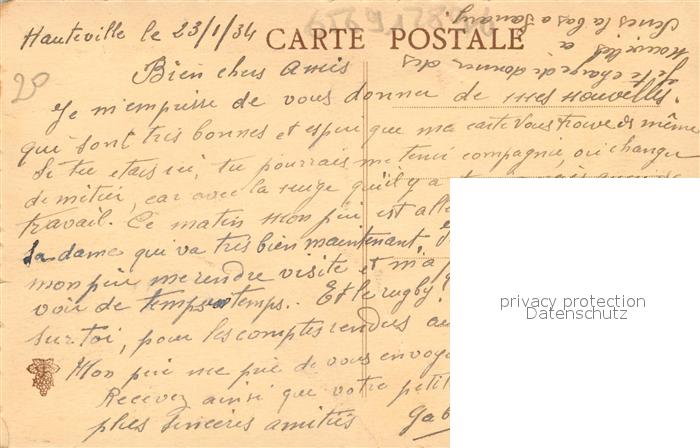 Hauteville le 23/1/34
CARTE POSTALE
20
Bien chers Amis
Je m'empresse de vous donner de mes nouvelles.
qui sont très bonnes et espère que ma carte vous trouve de même
Si tu etais ici, tu pourrais me tenir compagnie, où changer
de métier, car avec la neige qu'il y a
travail. Ce matin mon père est allé
sa dame qui va très bien maintenant,
mon père me rendre visite et m'a
voir de temps en temps. Et le rugby
sur toi, pour les comptes rendus au
Mon père me prie de vous envoye
Recevez ainsi que votre petit
plus sincères amitiés Gab
Je te charge de donner des
nouvelles à
la bas a Sanary
privacy protection
Datenschutz